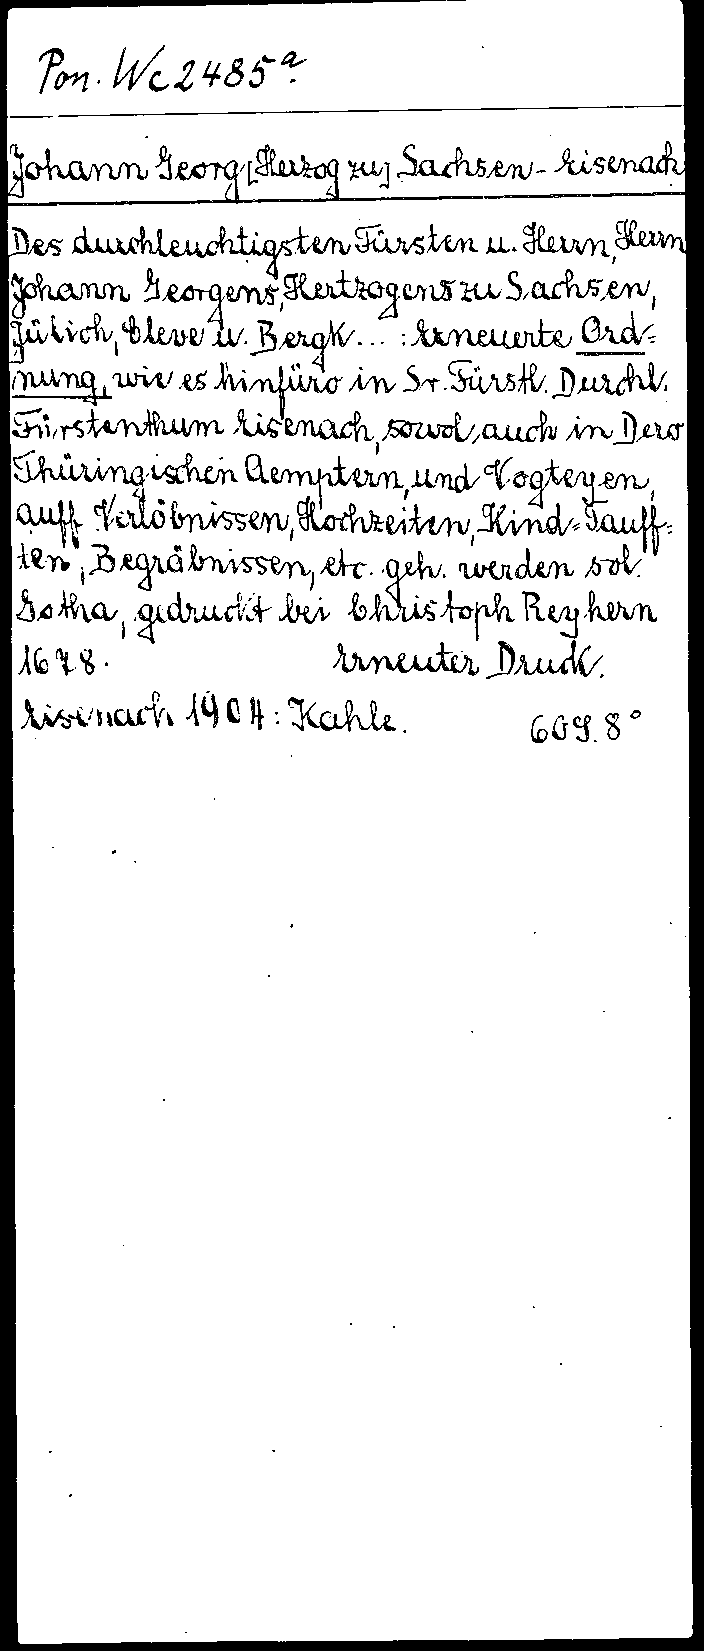 Pon. Wc 2485a.
Johann Georg [Herzog zu] Sachsen-Eisenach
Des durchleuchtigsten Fürsten u. Herrn, Herrn
Johann Georgens, Hertzogens zu Sachsen,
Jülich, Cleve u. Bergk...: Erneuerte Ord-
nung, wie es hinfüro in Sr. Fürstl. Durchl.
Fürstenthum Eisenach, sowol, auch in Dero
Thüringischen Aemptern, und Vogteyen,
auff Verlöbnissen, Hochzeiten, Kind-Tauff-
ten, Begräbnissen, etc. geh. werden sol.
Gotha, gedruckt bei Christoph Reyhern
1678. Erneuter Druck.
Eisenach 1904: Kahle. 609. 8°